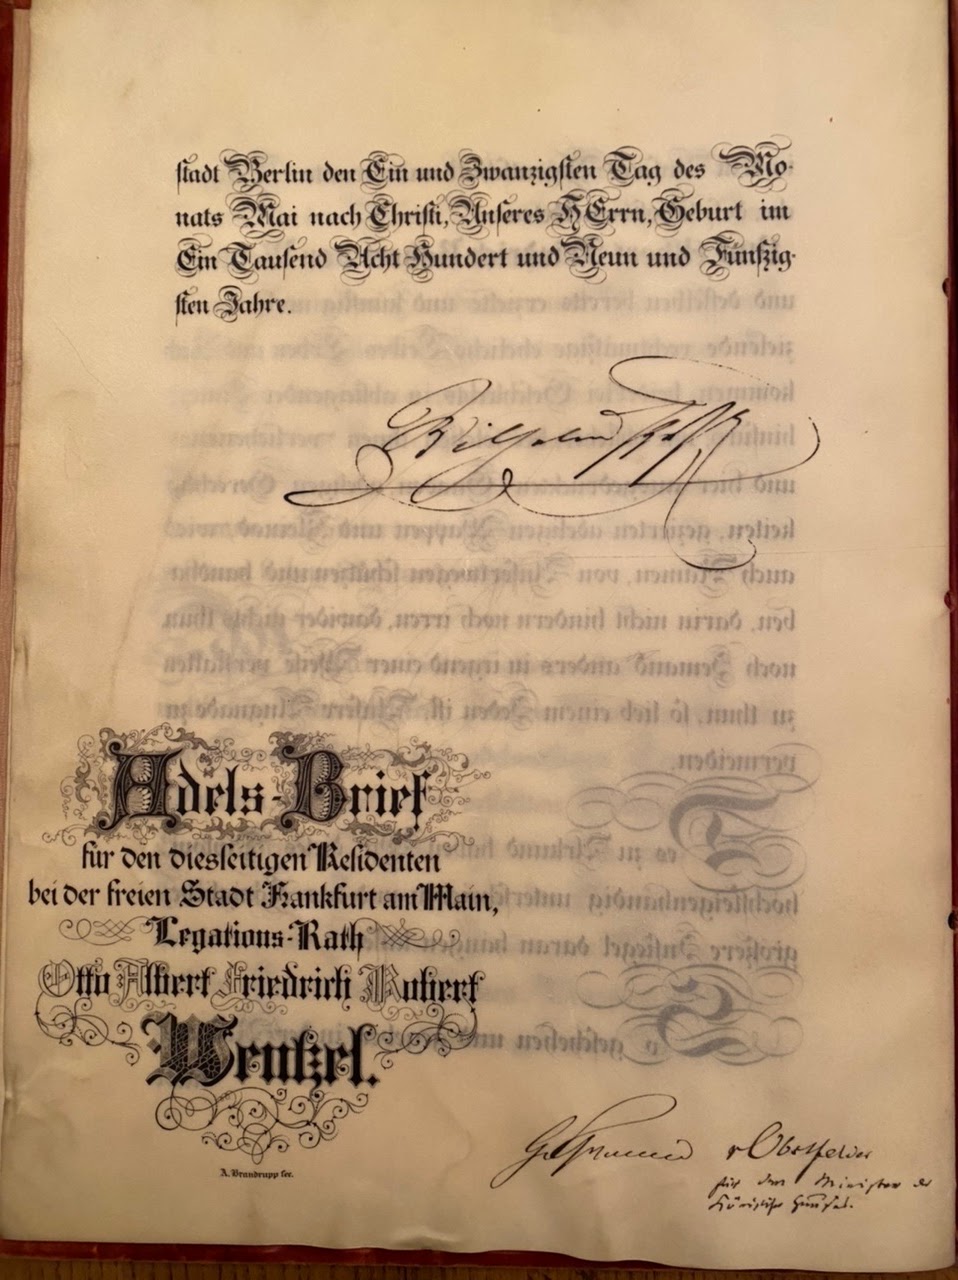 stadt Berlin den Ein und Zwanzigsten Tag des Mo-
nats Mai nach Christi, Unseres HErrn, Geburt im
Ein Tausend Acht Hundert und Neun und Fünfzig-
sten Jahre.
Wilhelm
Adels-Brief
für den diesseitigen Residenten
bei der freien Stadt Frankfurt am Main,
Legations-Rath
Otto Albert Friedrich Robert
Wentzel.
A. Brandrupp fec.
v Obstfelder
für den Minister des
Königlichen Hauses.